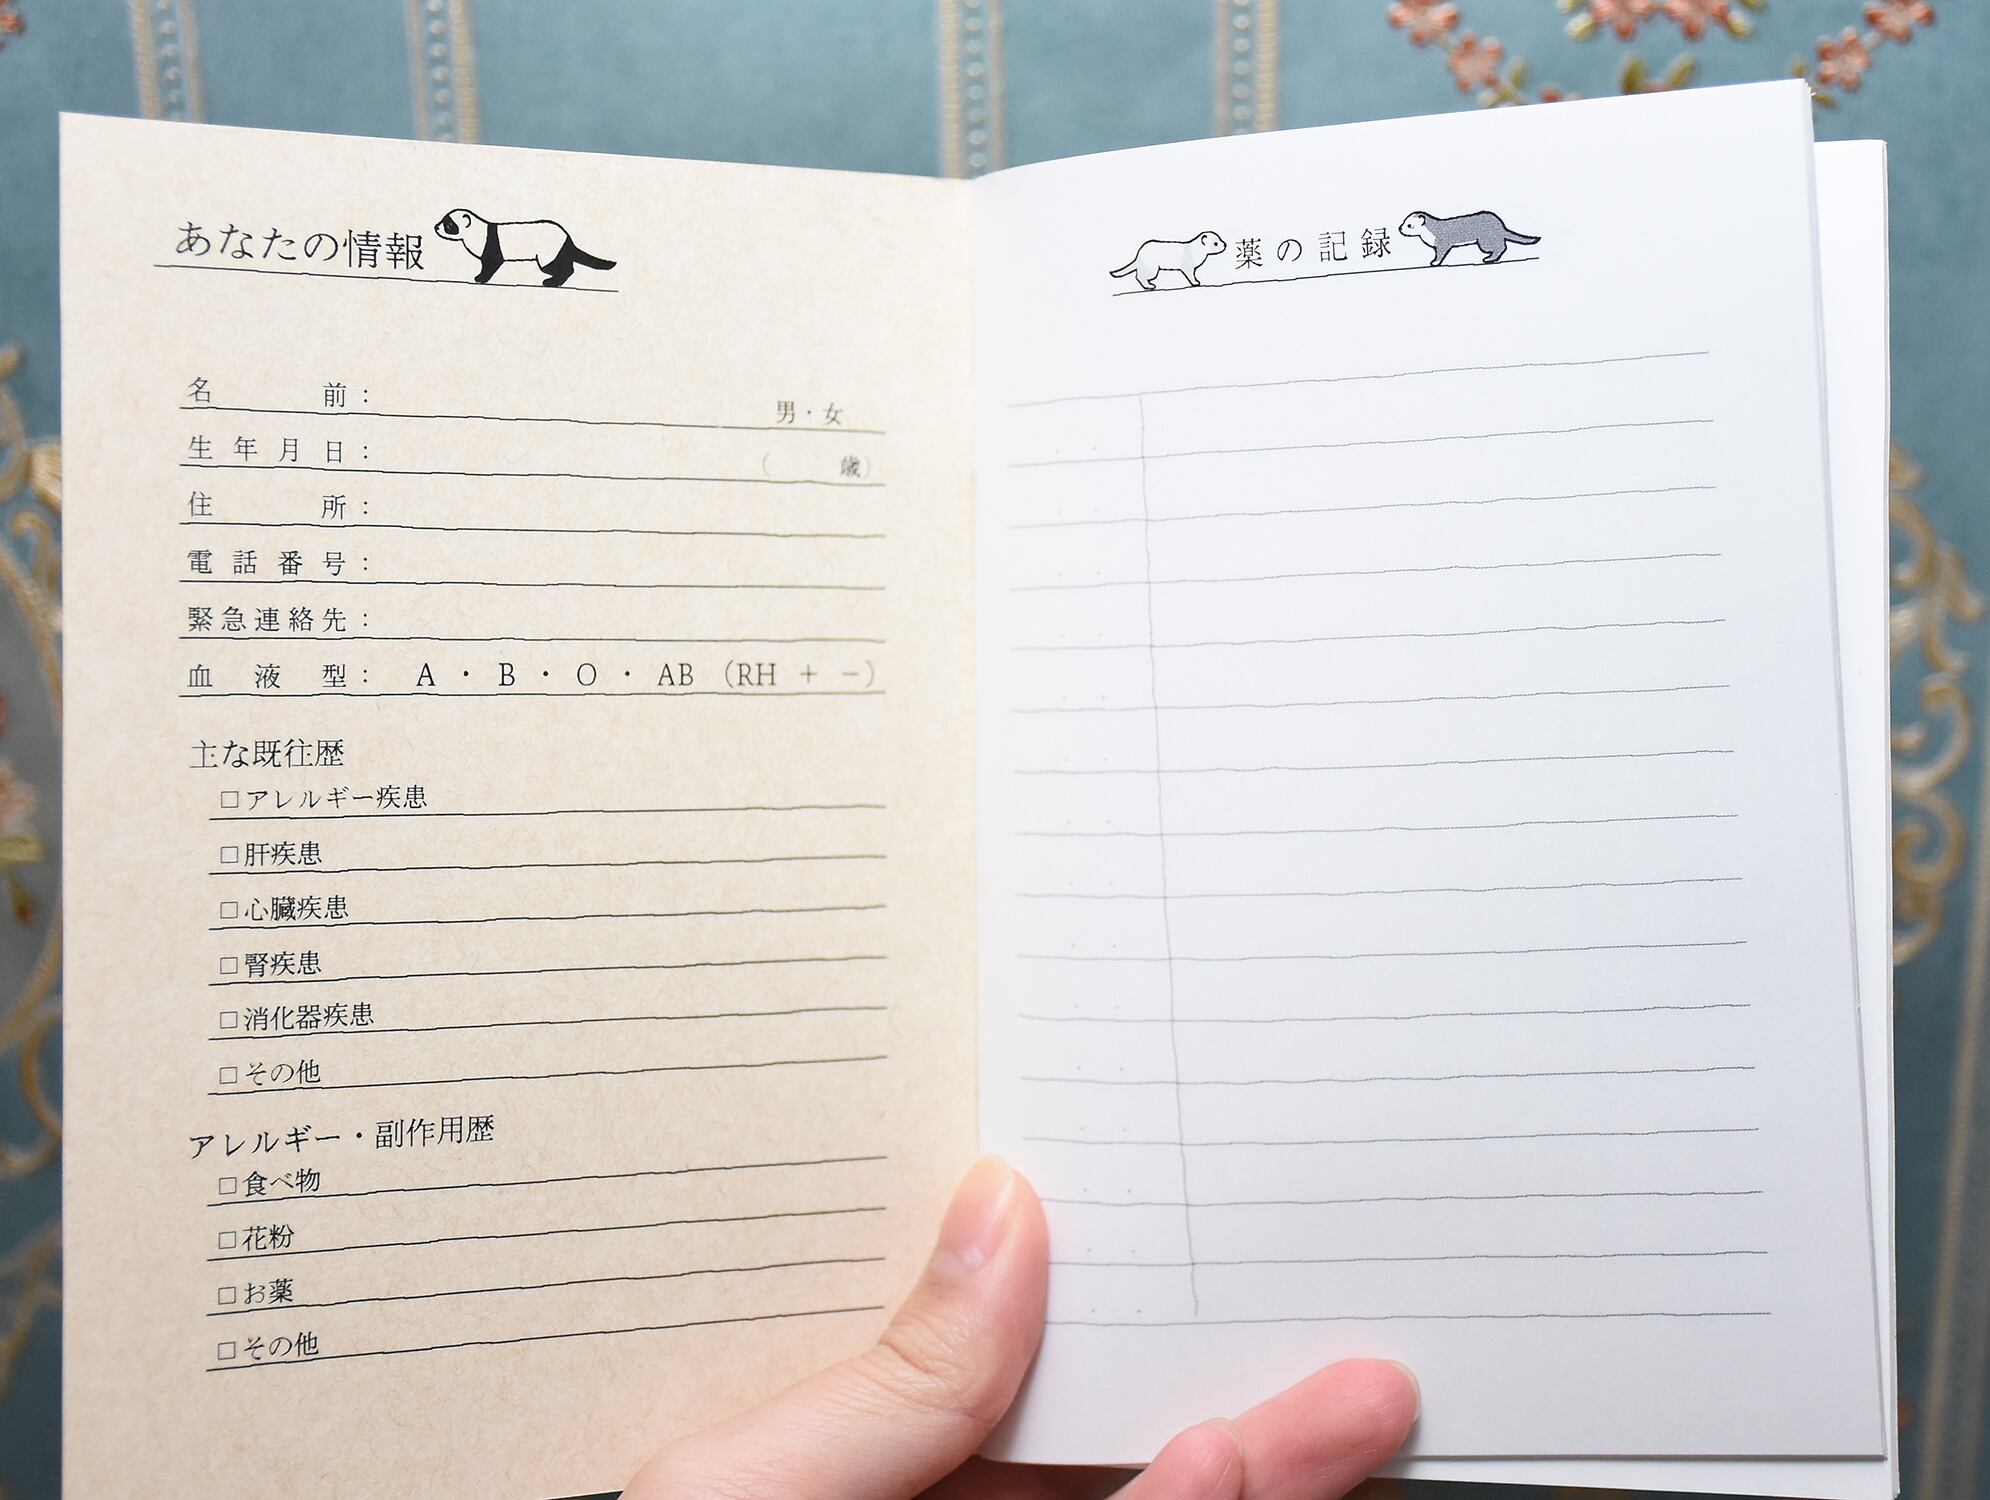 あなたの情報
名前：
男・女
生年月日：
（　　歳）
住所：
電話番号：
緊急連絡先：
血液型： A ・ B ・ O ・ AB （RH ＋ －）
主な既往歴
□アレルギー疾患
□肝疾患
□心臓疾患
□腎疾患
□消化器疾患
□その他
アレルギー・副作用歴
□食べ物
□花粉
□お薬
□その他
薬の記録